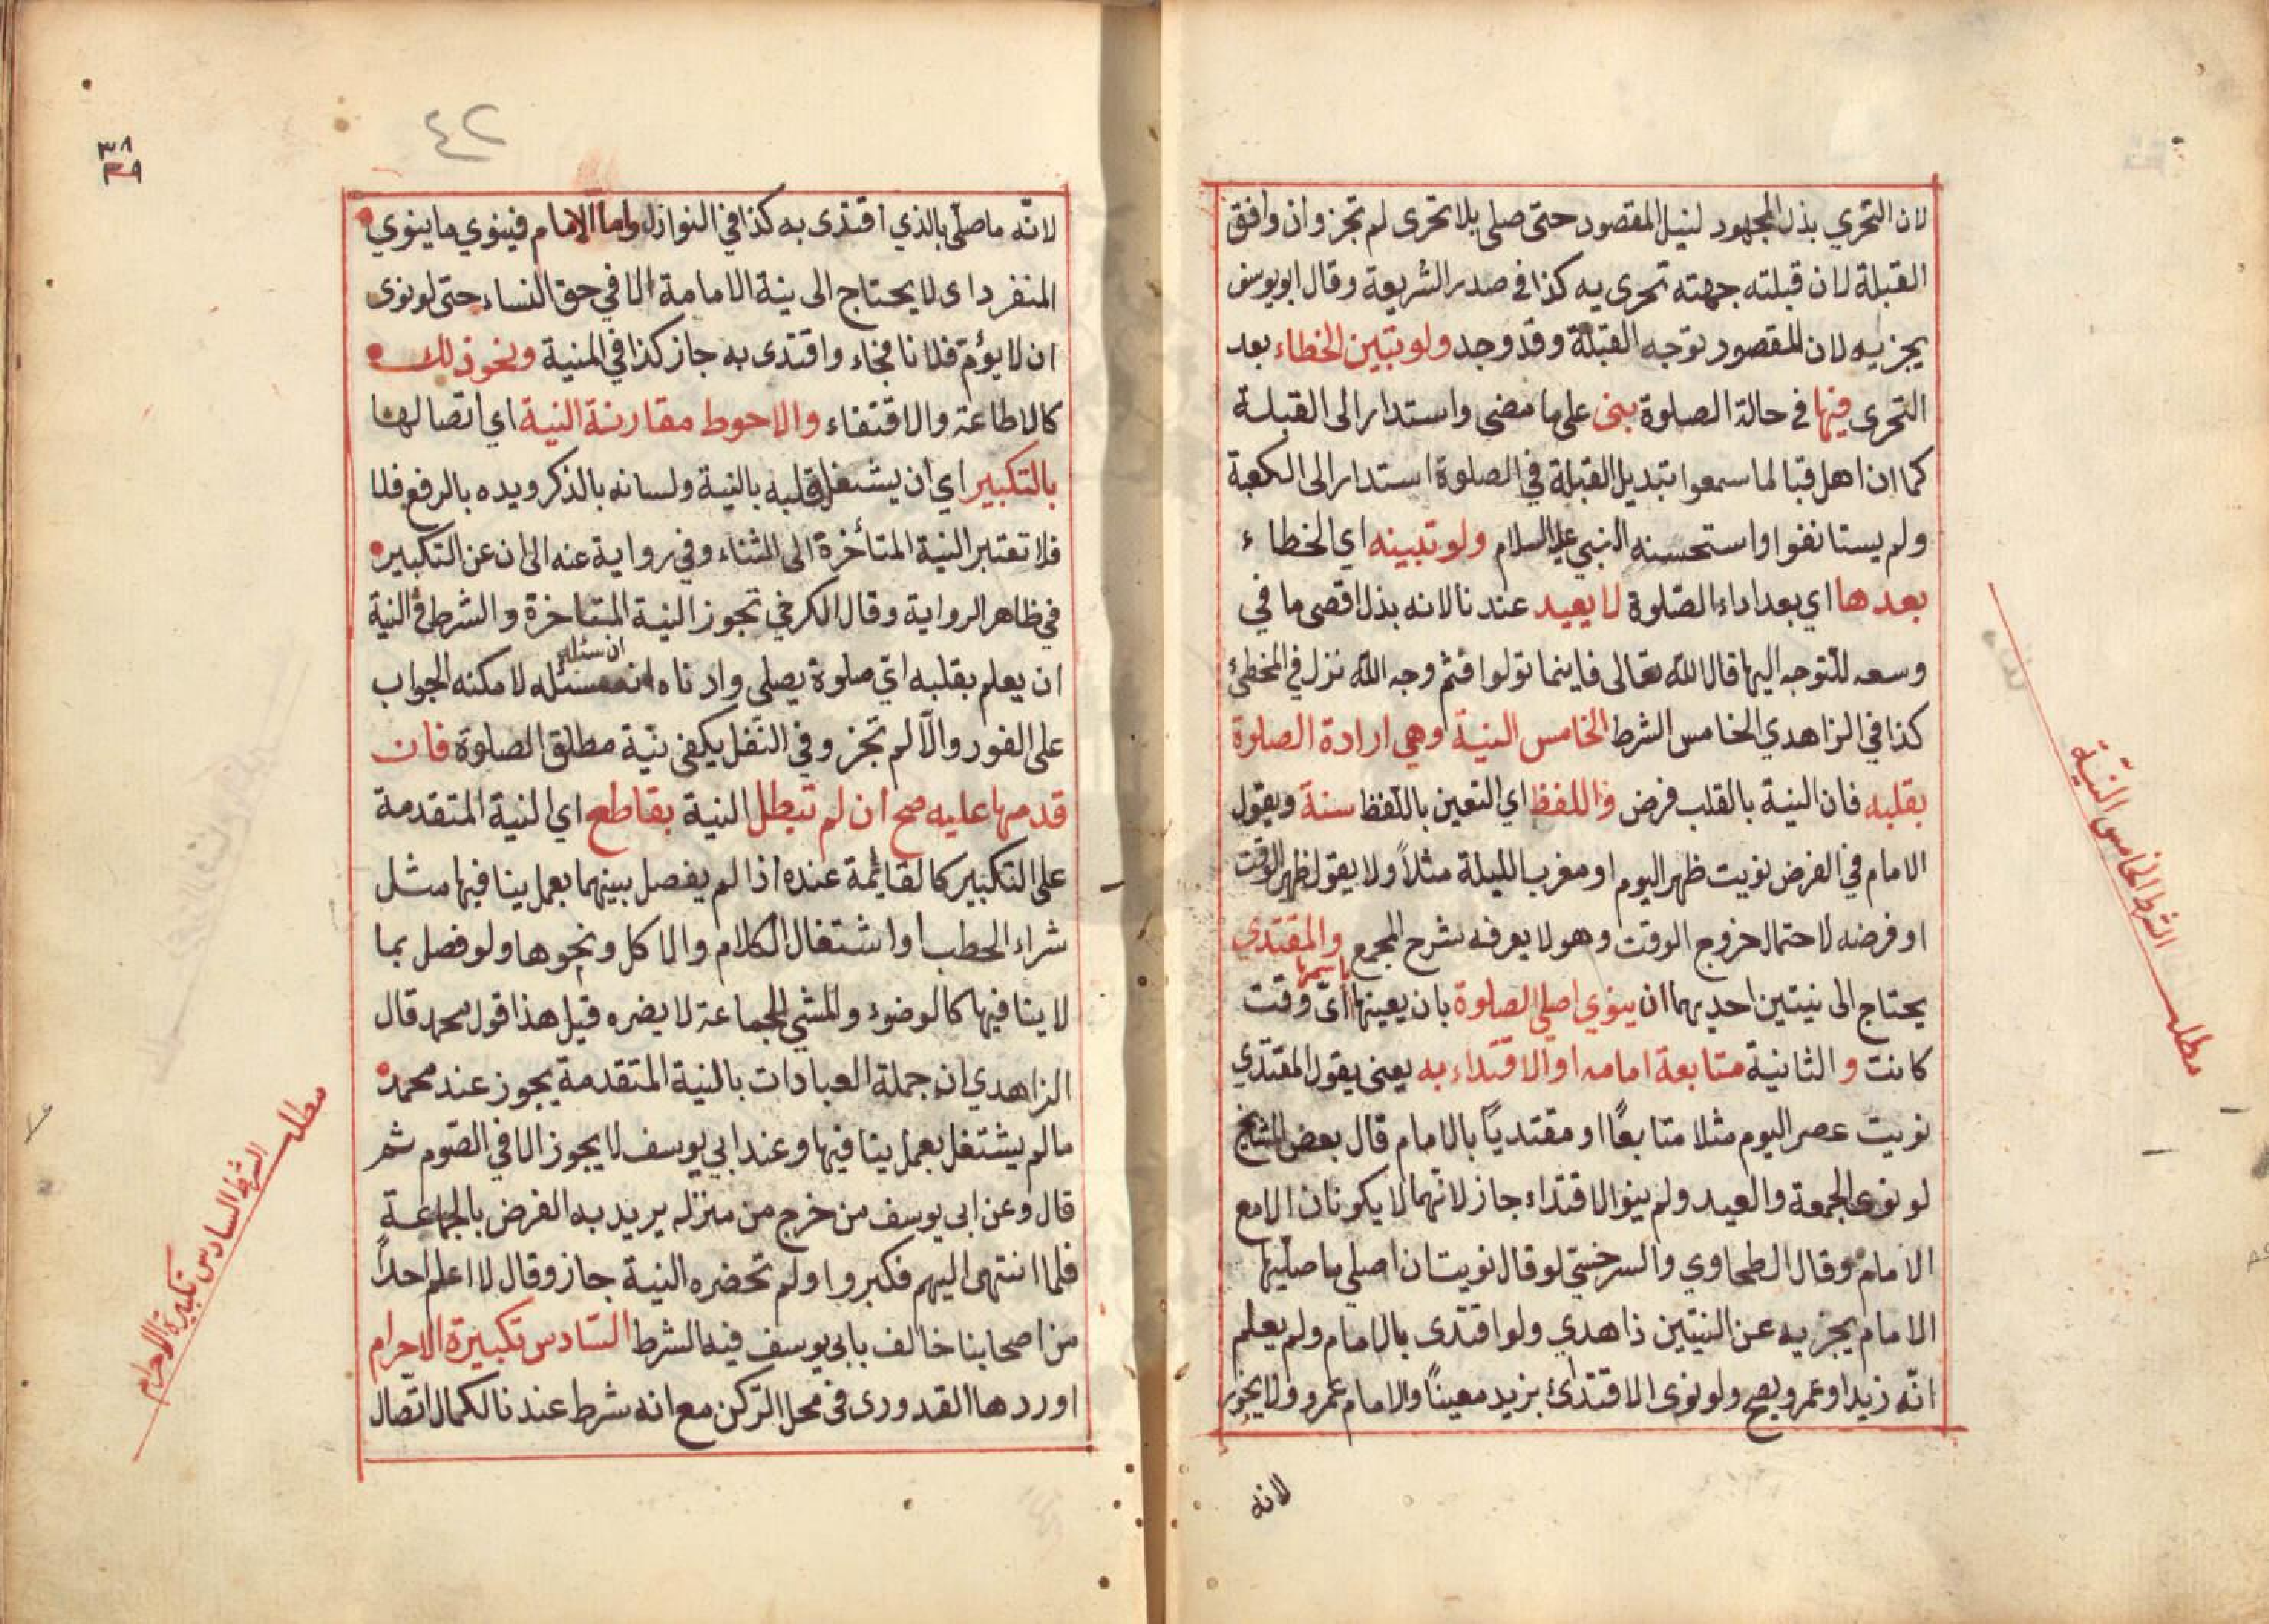 لان التحري بذل المجهود لنيل المقصود حتى صلى بلا تحرى لم تجز وان وافق
القبلة لان قبلته جهته تحرى يه كذا في صدر الشريعة وقال ابويوسف
يجزيه لان المقصود توجه القبلة وقد وجد ولو تبين الخطاء بعد
التحرى فيها في حالة الصلوة بنى على ما مضى واستدار الى القبلة
كما ان اهل قبا لما سمعوا تبديل القبلة في الصلوة استدار الى الكعبة
ولم يستانفوا واستحسنه النبي عليه السلام ولو تبينه اي الخطاء
بعدها اي بعد اداء الصّلوة لا يعيد عندنا لانه بذل اقصى ما في
وسعه للتوجه اليها قال الله تعالى فاينما تولوا فثم وجه الله نزل في المخطئ
كذا في الزاهدي الخامس الشرط الخامس النية وهي ارادة الصلوة
بقلبه فان النية بالقلب فرض واللفظ اي التعين باللفظ سنة ويقول
الامام في الفرض نويت ظهر اليوم او مغرب الليلة مثلاً ولا يقول ظهر الوقت
او فرضه لاحتمال خروج الوقت وهو لا يعرفه شرح المجمع والمقتدي
يحتاج الى نيتين احديهما ان ينوي اصل الصلوة بان يعينها باسمها اىّ وقت
كانت والثانية متابعة امامه او الاقتداء به يعنى يقول المقتدي
نويت عصر اليوم مثلا متابعًا او مقتديًا بالامام قال بعض المشايخ
لو نوى الجمعة والعيد ولم ينو الاقتداء جاز لانهما لا يكونان الا مع
الامام وقال الطحاوي والسرخسي لو قال نويت ان اصلي ما صليها
الامام يجزيه عن النيتين ذاهدي ولو اقتدى بالامام ولم يعلم
انّه زيد او عمرو يصح ولو نوى الاقتدائ بزيد معينًا والامام عمرو ولا يجوز
لانه
مطلب الشرط الخامس النيّة
٤٢
٣٨
لانّه ما صلّى بالذي اقتدى به كذا في النوازل واما الامام فينوي ما ينوي
المنفرد اى لا يحتاج الى نية الامامة الا في حق النساء حتى لو نوى
ان لا يؤمّ فلانا فجاء واقتدى به جاز كذا في المنية ونحو ذلك
كالاطاعة والاقتفاء والاحوط مقارنة النية اي اتصالها
بالتكبير اي ان يشتغل قلبه بالنية ولسانه بالذكر ويده بالرفع فلا
فلا تعتبر النية المتأخرة الى الثناء وفي رواية عنه الى ان عن التكبير
في ظاهر الرواية وقال الكرخي تجوز النية المتاخرة والشرط في النية
ان يعلم بقلبه اىّ صلوة يصلى وادناه ان سئل لامكنه الجواب
على الفور والّا لم تجز وفي النّفل يكفى نيّة مطلق الصلوة فان
قدمها عليه صح ان لم تبطل النية بقاطع اي النية المتقدمة
على التكبير كالقائمة عنده اذا لم يفصل بينهما بعمل ينافيها مثل
شراء الحطب او اشتغال الكلام والاكل ونحوها ولو فصل بما
لا ينافيها كالوضوء والمشي للجماعة لا يضره قيل هذا قول محمد قال
الزاهدي ان جملة العبادات بالنية المتقدمة يجوز عند محمد
ما لم يشتغل بعمل ينافيها وعند ابي يوسف لا يجوز الا في الصّوم ثم
قال وعن ابي يوسف من خرج من منزله يريد به الفرض بالجماعة
فلما انتهى اليهم فكبروا ولم تحضره النية جاز وقال لا اعلم احداً
من اصحابنا خالف بابي يوسف فيه الشرط السّادس تكبيرة الاحرام
اوردها القدورى في محل الرّكن مع انه شرط عندنا لكمال اتّصال
مطلب الشرط السادس تكبيرة الاحرام